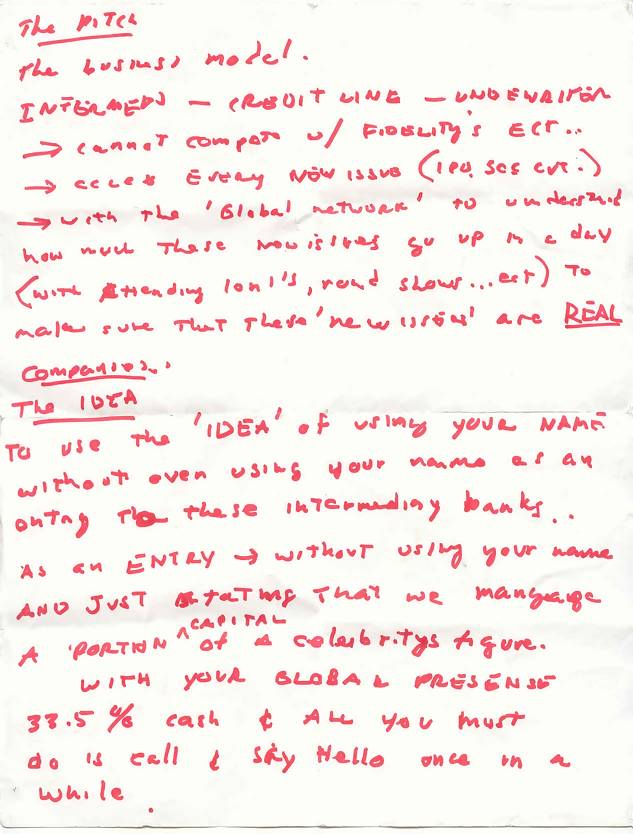 The PITCH
The business model.
INTERMEDS — CREDIT LINE — UNDEWRITER
→ cannot compete w/ FIDELITY'S ECT..
→ access EVERY NEW ISSUE (IPO, SCS CVT.)
→ with the 'Global network' to understand
how much These new issues go up in a day
(with attending 1on1's, road shows...ect) To
make sure That These 'new issues' are REAL
Companies.
The IDEA
To use the 'IDEA' of using your NAME
without even using your name as an
entry To these intermediary banks..
As an ENTRY → without using your name
AND JUST stating That we mangage
A 'PORTION ^ of a celebritys figure.
CAPITAL
WITH YOUR GLOBAL PRESENSE
33.5 % cash & ALL you must
do is call & say Hello once in a
while.